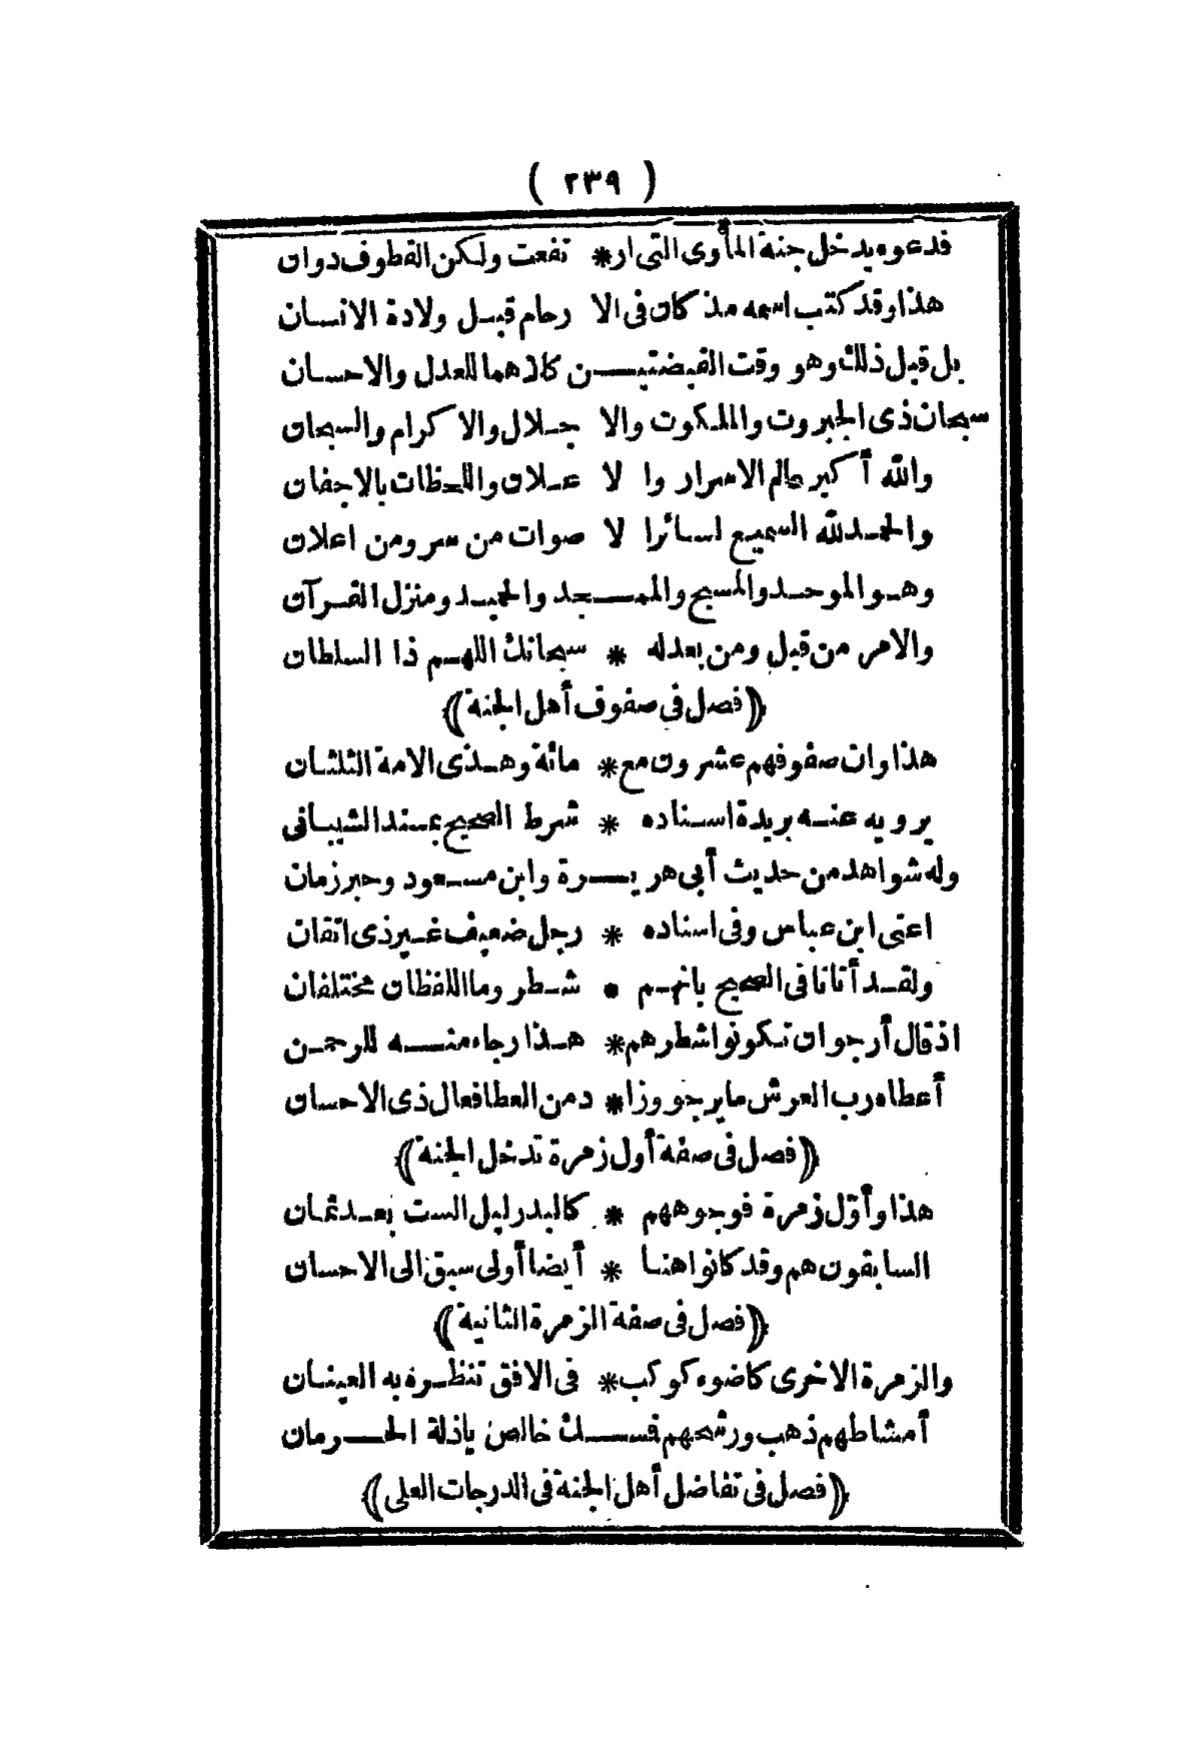 ( ٢٣٩ )
فدعوه يدخل جنة المأوى التى ار * تفعت ولكن القطوف دوان
هذا وقد كتب اسمه مذ كان فى الا رحام قبل ولادة الانسان
بل قبل ذلك وهو وقت القبضتين كلاهما للعدل والاحسان
سبحان ذى الجبروت والملكوت والا جلال والاكرام والسبحان
والله أكبر عالم الاسرار وا لا علان واللحظات بالاجفان
والحمد لله السميع لسائرا لا صوات من سر ومن اعلان
وهو الموحد والمسبح والممجد والحميد ومنزل القرآن
والامر من قبل ومن بعد له * سبحانك اللهم ذا السلطان
﴿ فصل فى صفوف أهل الجنة ﴾
هذا وان صفوفهم عشرون مع * مائة وهذى الامة الثلثان
يرويه عنه بريدة اسناده * شرط الصحيح بمسند الشيبانى
وله شواهد من حديث أبى هريرة وابن مسعود وحبر زمان
اعنى ابن عباس وفى اسناده * رجل ضعيف غير ذى اتقان
ولقد أتانا فى الصحيح بانهم * شطر وما اللفظان مختلفان
اذ قال أرجو ان تكونوا شطرهم * هذا رجاء منه للرحمن
أعطاه رب العرش ما يرجو وزا * د من العطا فعال ذى الاحسان
﴿ فصل فى صفة أول زمرة تدخل الجنة ﴾
هذا وأوّل زمرة فوجوههم * كالبدر ليل الست بعد ثمان
السابقون هم وقد كانوا هنا * أيضا أولى سبق الى الاحسان
﴿ فصل فى صفة الزمرة الثانية ﴾
والزمرة الاخرى كاضوء كوكب * فى الافق تنظره به العينان
أمشاطهم ذهب ورشحهم فمسك خالص ياذلة الحرمان
﴿ فصل فى تفاضل أهل الجنة فى الدرجات العلى ﴾